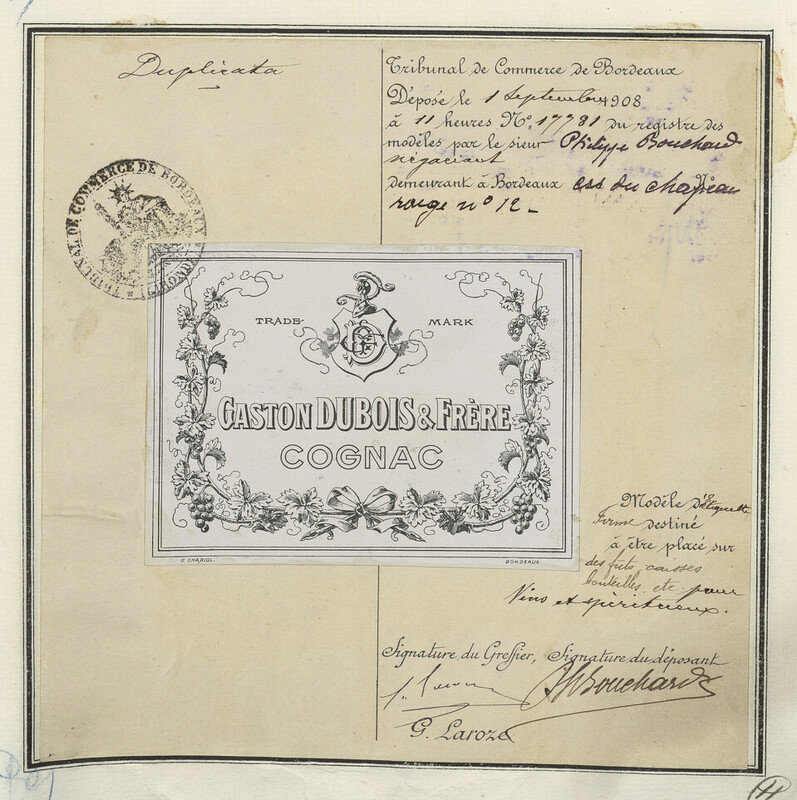 Duplicata
Tribunal de Commerce de Bordeaux
Déposé le 1 Septembre 1908
à 11 heures No 17781 du registre des
modèles par le sieur Philippe Bouchard
négociant
demeurant à Bordeaux css du chapeau
rouge no 12 -
TRIBUNAL DE COMMERCE DE BORDEAUX
(GIRONDE)
TRADE- MARK
GASTON DUBOIS & FRÈRE
COGNAC
G. CHARIOL. BORDEAUX
Modèle d'Etiquette
Forme destiné
à être placé sur
des fûts, caisses
bouteilles, etc. pour
Vins et spiritueux.
Signature du Greffier, Signature du déposant
Ph Bouchard
G. Laroze